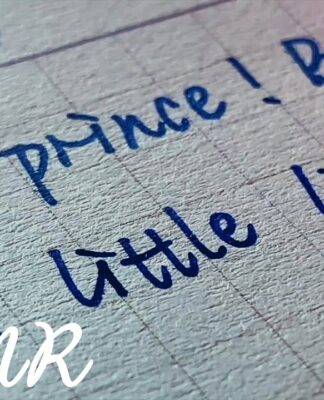 prince! B
little li
MR